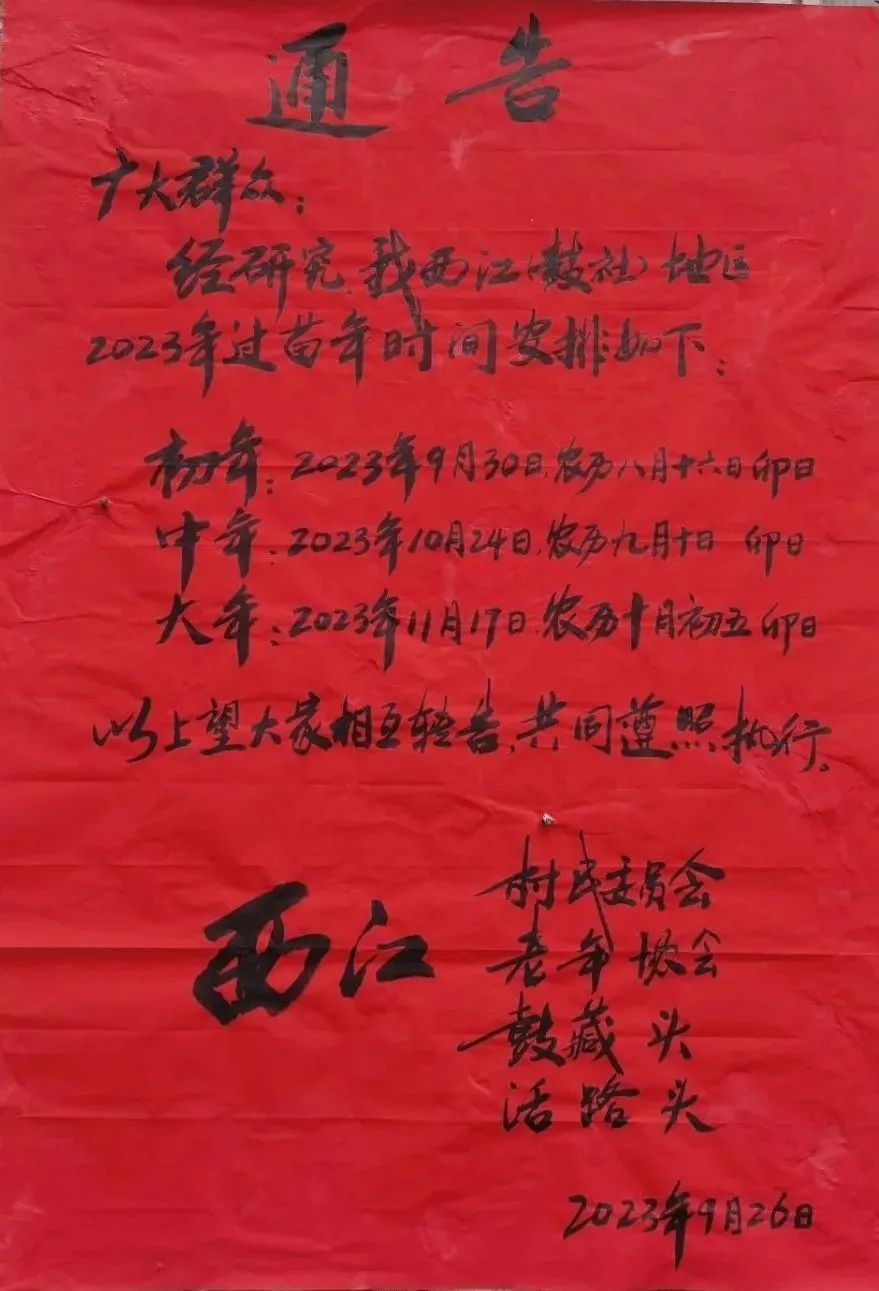 通告
广大群众：
经研究，我西江（鼓社）地区
2023年过苗年时间安排如下：
初年：2023年9月30日，农历八月十六日卯日
中年：2023年10月24日，农历九月十日 卯日
大年：2023年11月17日，农历十月初五卯日
以上望大家相互转告，共同遵照执行。
西江
村民委员会
老年协会
鼓藏头
活路头
2023年9月26日